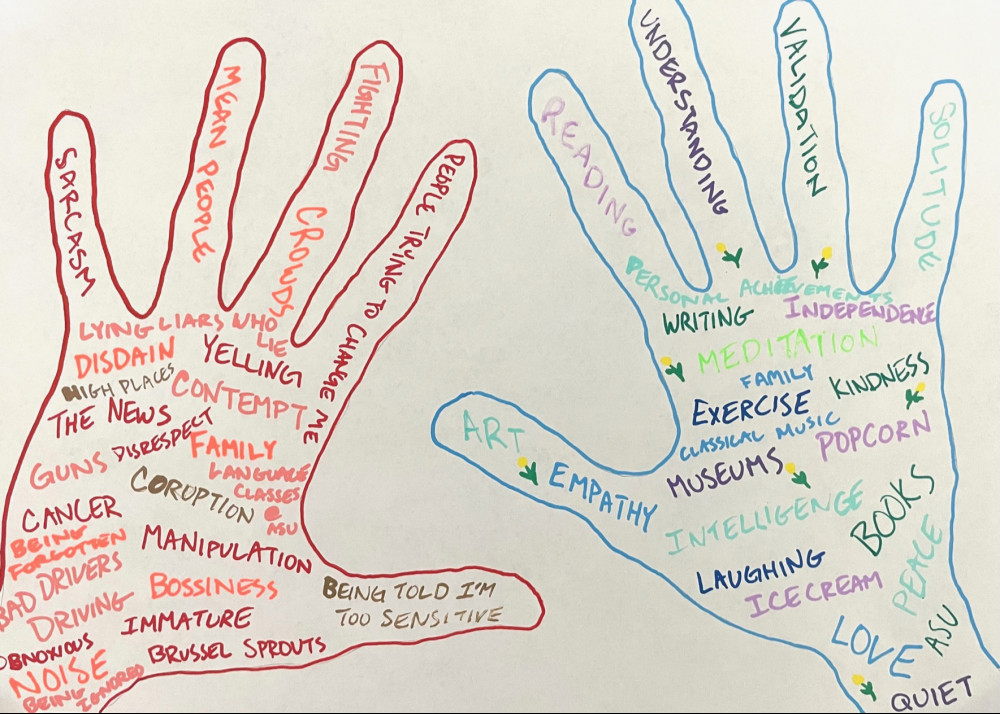 SARCASM
MEAN PEOPLE
FIGHTING
CROWDS
PEOPLE TRYING TO CHANGE ME
LYING LIARS WHO
LIE
DISDAIN
YELLING
HIGH PLACES
CONTEMPT
THE NEWS
DISRESPECT
FAMILY
GUNS
LANGUAGE
CLASSES
@
ASU
CORUPTION
CANCER
BEING
FORGOTTEN
MANIPULATION
BAD DRIVERS
BOSSINESS
BEING TOLD I'M
TOO SENSITIVE
DRIVING
IMMATURE
OBNOXIOUS
NOISE
BRUSSEL SPROUTS
BEING IGNORED
READING
UNDERSTANDING
VALIDATION
SOLITUDE
PERSONAL ACHIEVEMENTS
WRITING
INDEPENDENCE
MEDITATION
FAMILY
KINDNESS
EXERCISE
CLASSICAL MUSIC
POPCORN
ART
EMPATHY
MUSEUMS
INTELLIGENCE
BOOKS
LAUGHING
PEACE
ICECREAM
LOVE
ASU
QUIET